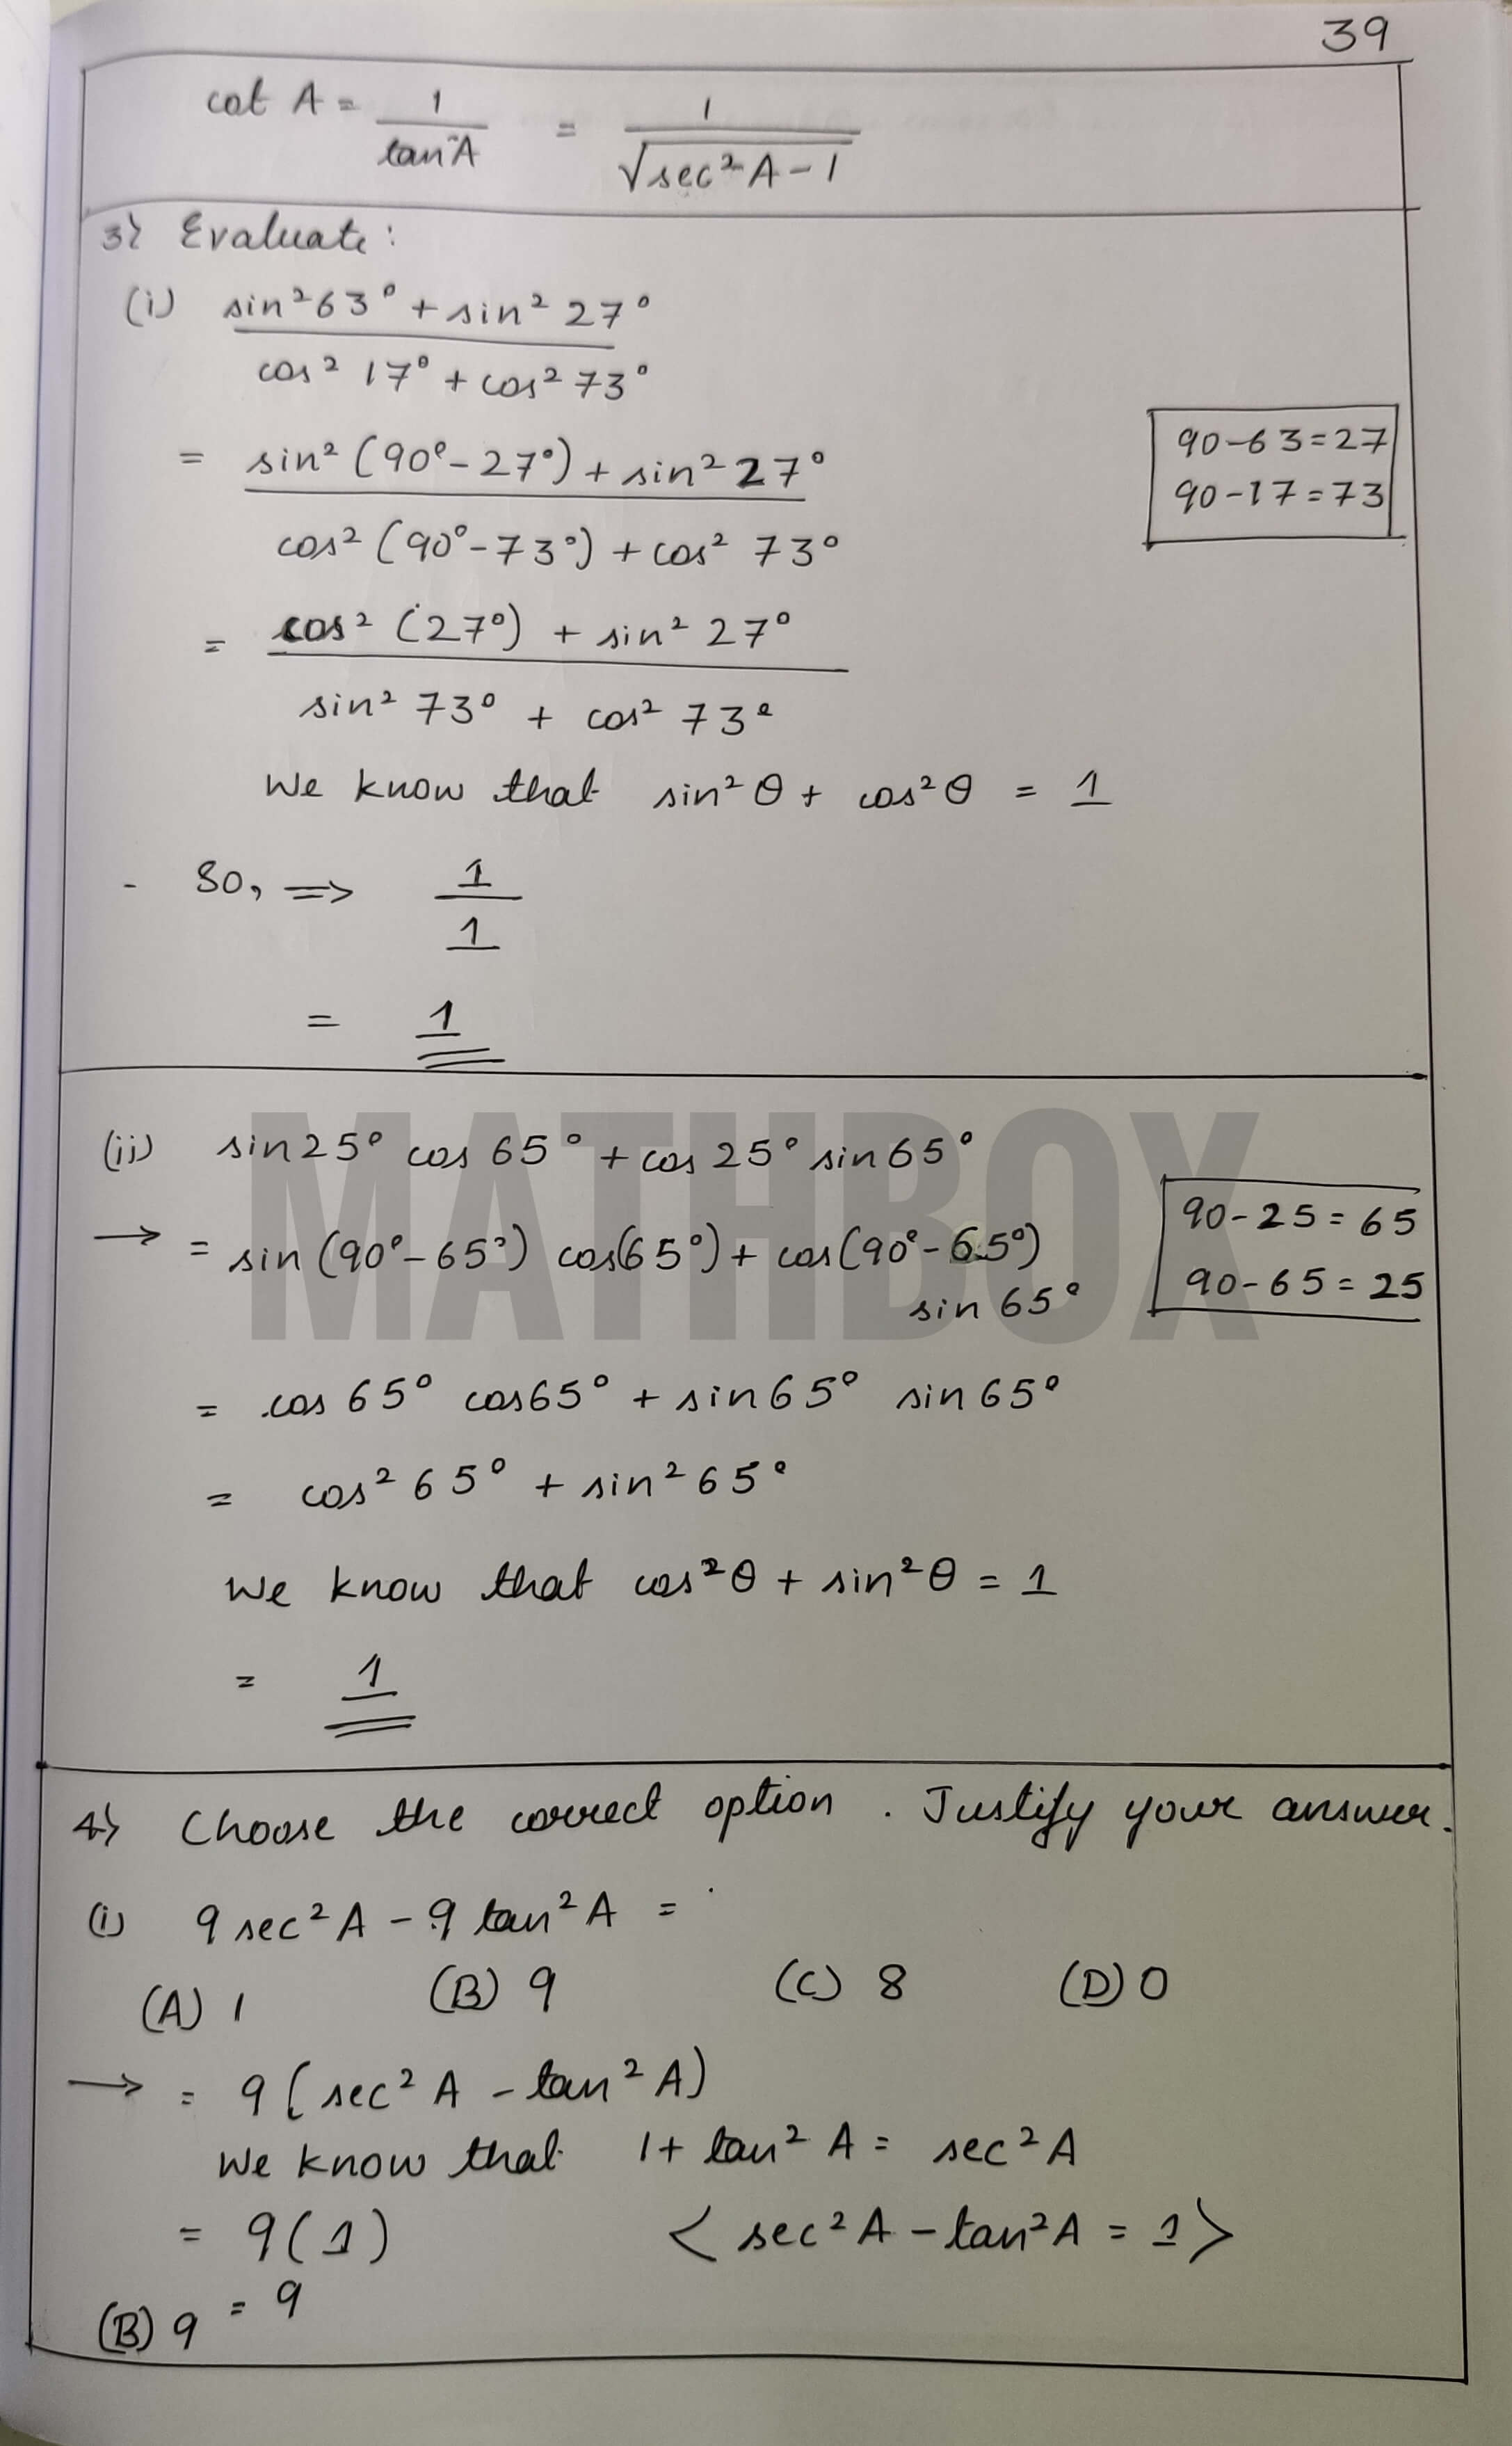 39
cot A = 1/tan A = 1/√sec²A-1
3} Evaluate:
(i) sin²63° + sin² 27°
cos² 17° + cos² 73°
= sin² (90°-27°) + sin² 27°
cos² (90°-73°) + cos² 73°
90-63=27
90-17=73
= cos² (27°) + sin² 27°
sin² 73° + cos² 73°
We know that sin²θ + cos²θ = 1
- So, => 1/1
= 1
MATHBOX
(ii) sin25° cos 65° + cos 25° sin65°
→ = sin (90°-65°) cos(65°) + cos(90°-65°)
sin 65°
90-25=65
90-65=25
= cos 65° cos65° + sin65° sin 65°
= cos² 65° + sin² 65°
We know that cos²θ + sin²θ = 1
= 1
4} Choose the correct option. Justify your answer.
(i) 9 sec² A - 9 tan² A =
(A) 1 (B) 9 (C) 8 (D) 0
→ = 9 (sec² A - tan² A)
We know that 1+ tan² A = sec² A
= 9(1) < sec² A - tan² A = 1 >
= 9
(B) 9